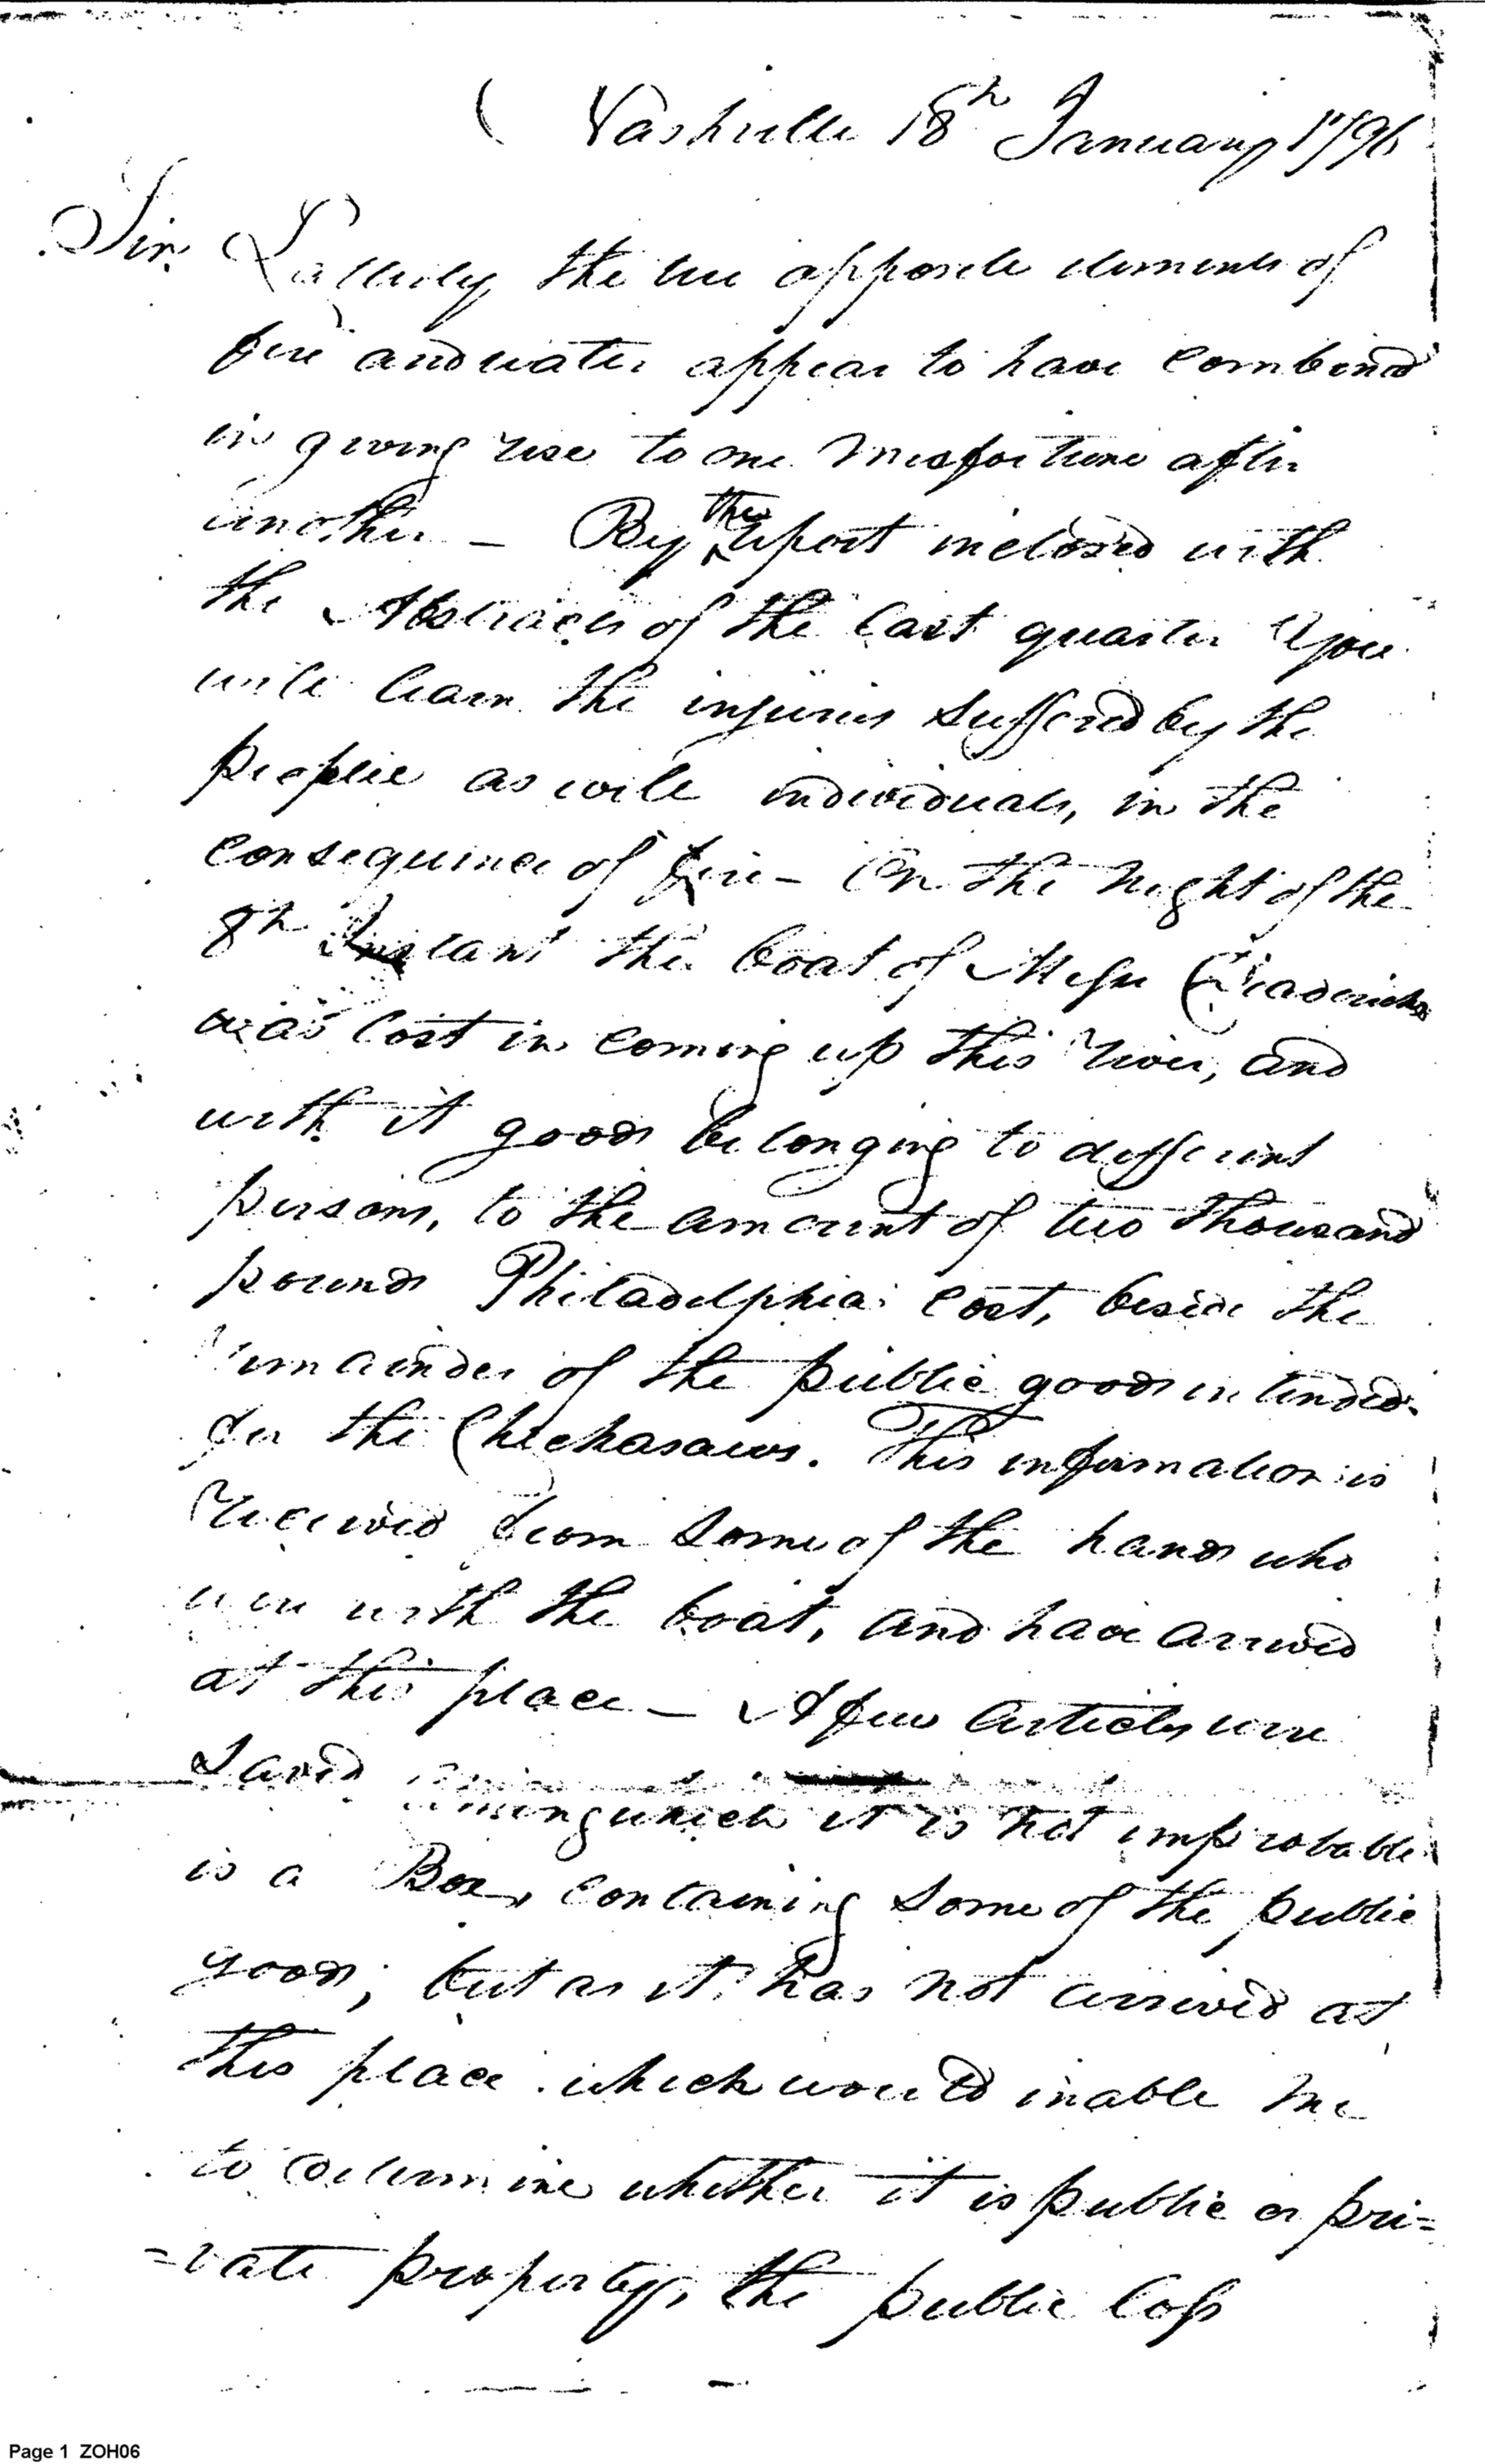 Nashville 18h January 1796
Sir Latterly the two opposite elements of
fire and water appear to have combined
in giving rise to one misfortune after
another - By the report inclosed with
the Abstracts of the last quarter you
will learn the injuries suffered by the
people as well individuals, in the
consequence of fire - On the night of the
8h Instant the boat of Messrs
was lost in coming up this river, and
with it goods belonging to different
persons, to the amount of two thousand
pounds Philadelphia cost, beside the
remainder of the public goods intended
for the Chickasaws. This information is
received from some of the hands who
were with the boat, and have arrived
at this place - A few articles were
saved among which it is not improbable
is a Box, containing some of the public
goods; but as it has not arrived at
this place which would inable me
to determine whether it is public or pri=
=vate property, the public loss
Page 1 ZOH06